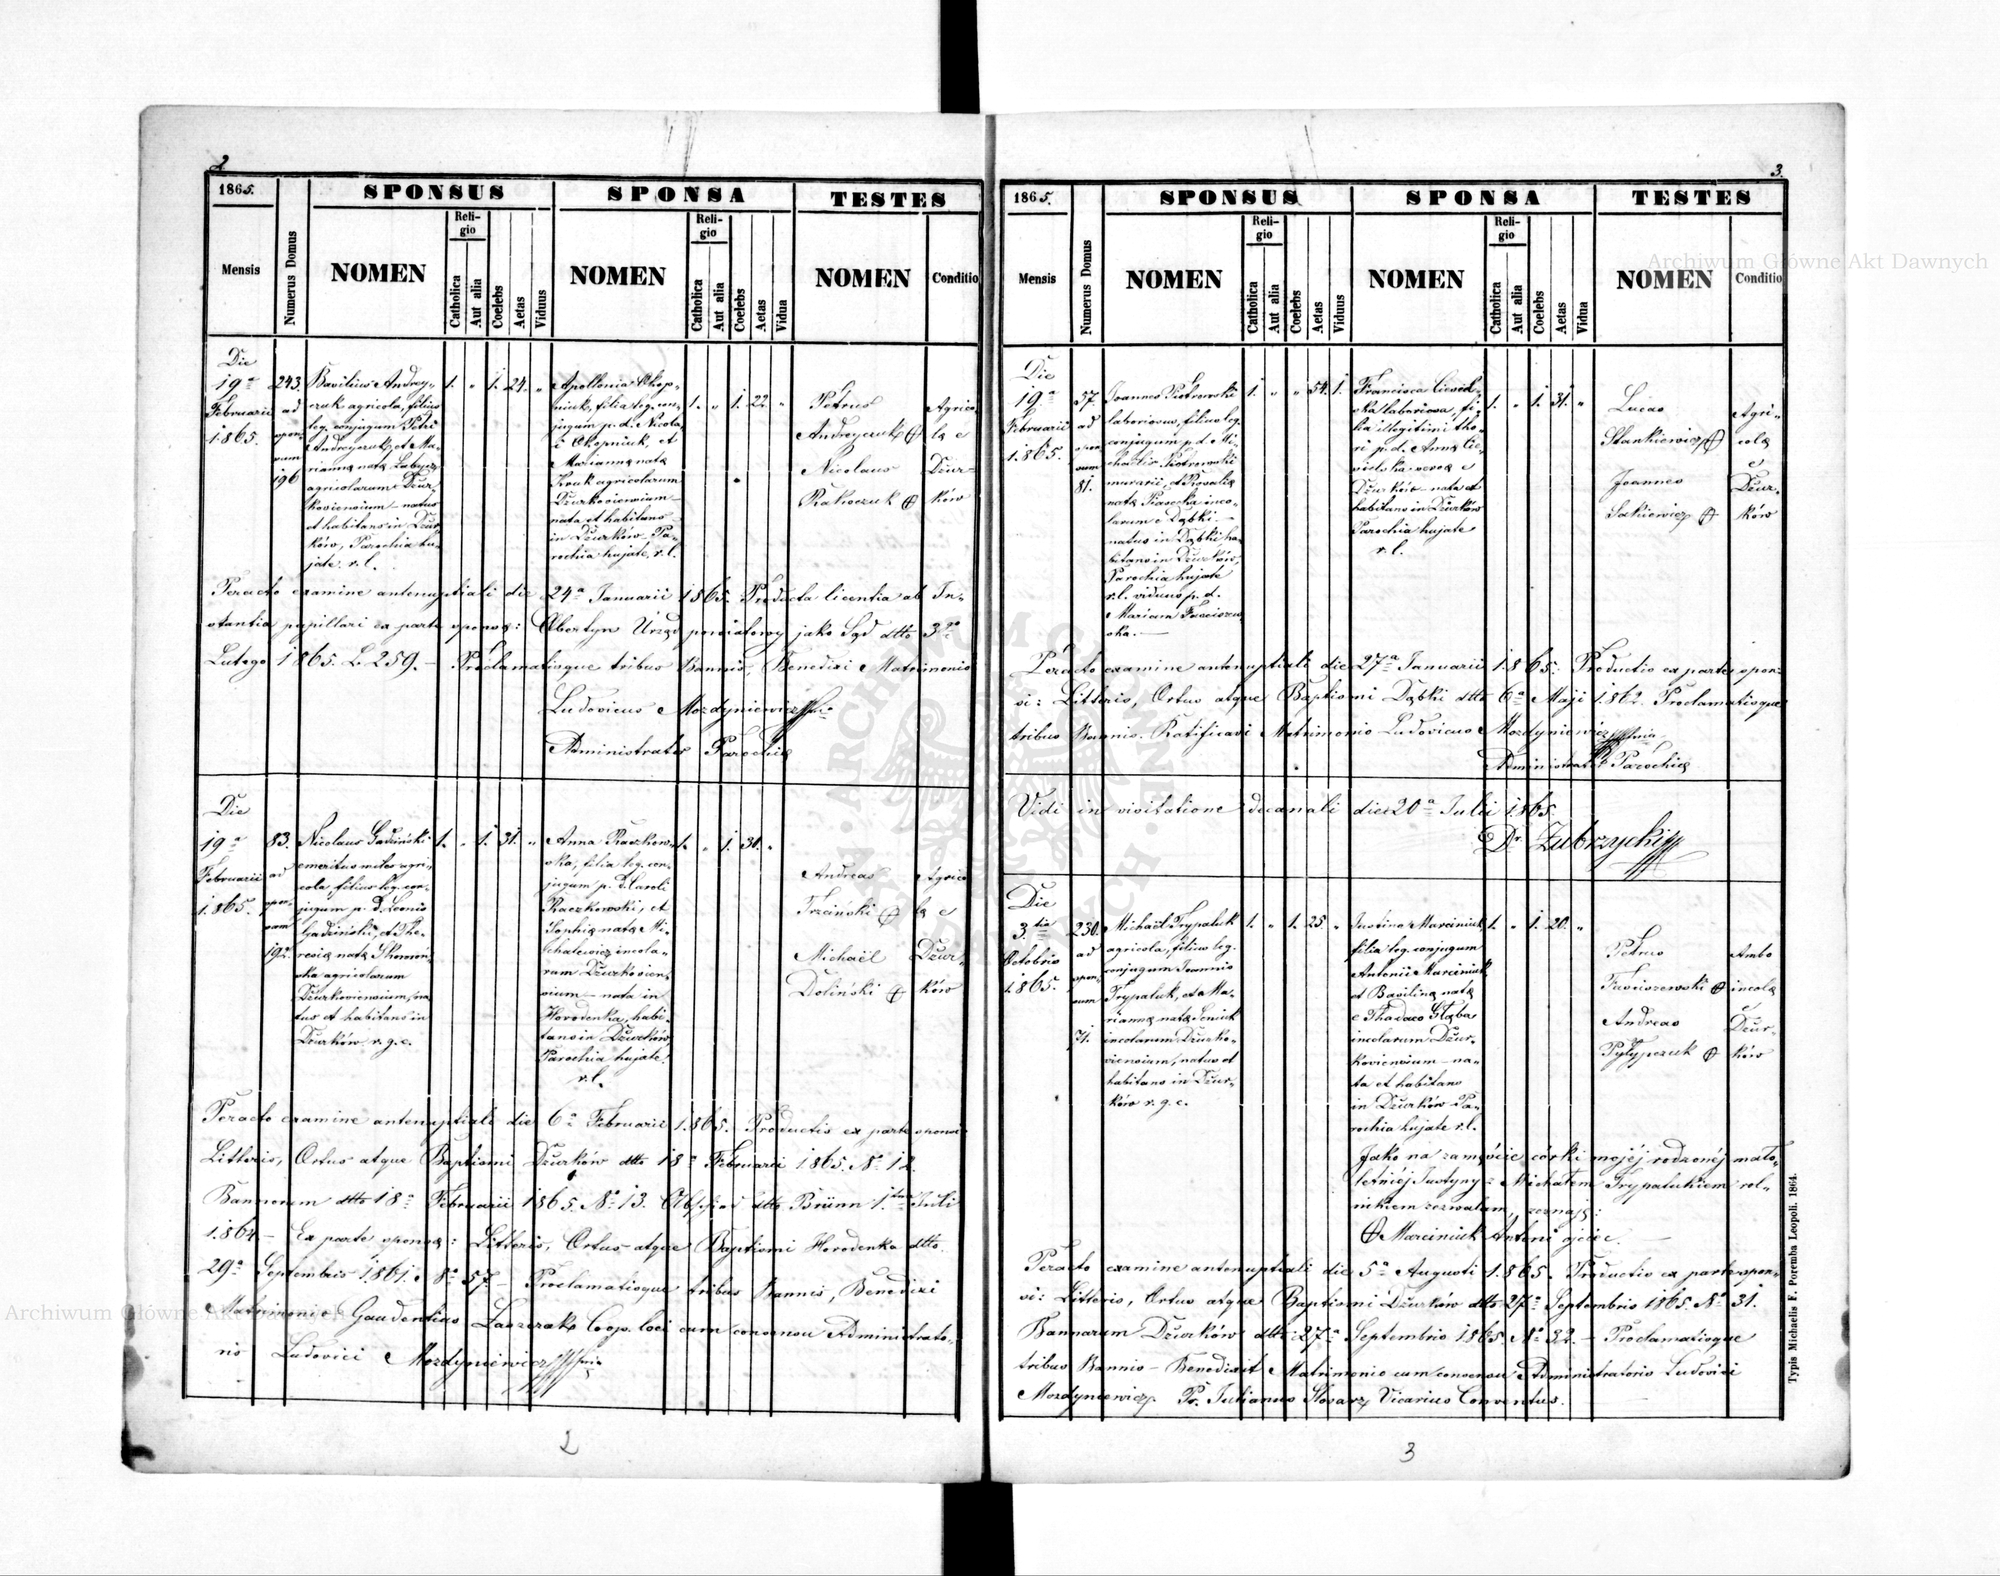 2
1865.
SPONSUS
SPONSA
TESTES
Mensis
Numerus Domus
NOMEN
Religio
Catholica
Aut alia
Coelebs
Aetas
Viduus
NOMEN
Religio
Catholica
Aut alia
Coelebs
Aetas
Vidua
NOMEN
Conditio
Die
19a
Februarii
1865.
243.
ad
spon-
sum
196
Basilius Andrey-
czuk agricola, filius
leg. conjugum Petri
Andreyczuk, et Ma-
rianna nata Labycz
agricolarum Dżur-
koviensium – natus
et habitans in Dżur-
ków, Parochia hu-
jate r. l.
1. " 1. 24. "
Apollonia Okop-
niuk, filia leg. con-
jugum p. d. Nicola-
i Okopniuk, et
Marianna nata
Kruk agricolarum
Dżurkoviensium –
nata et habitans
in Dżurków, Pa-
rochia hujate, r. l.
1. " 1. 22. "
Petrus
Andreyczuk
Nicolaus
Rakoczuk
Agrico-
la e
Dżur-
ków
Peracto examine antenuptiali die 24a Januarii 1865. Producta licentia ab In-
stantia pupillari ex parte sponsa: Obertyn Urząd powiatowy jako Sąd dtto 3go
Lutego 1865. L. 259. – Proclamatisque tribus Bannis, Benedixi Matrimonio
Ludovicus Mozdyniewicz
Administrator Parochia
Die
19a
Februarii
1865.
83.
ad
spon-
sam
192.
Nicolaus Gadziński
emeritus miles agri-
cola filius leg. con-
jugum p. d. Leonis
Gadziński, et The-
resia nata Skomoń-
ska agricolarum
Dżurkoviensium, na-
tus et habitans in
Dżurków r. g. c.
1. " 1. 31. "
Anna Raczkow-
ska, filia leg. con-
jugum p. d. Caroli
Raczkowski, et
Sophia nata Mi-
chalewicz incola-
rum Dżurkovien-
sium – nata in
Horodenka, habi-
tans in Dżurków
Parochia hujate
r. l.
1. " 1. 30. "
Andreas
Trzciński
Michaël
Doliński
Agrico-
la e
Dżur-
ków
Peracto examine antenuptiali die 6a Februarii 1865. Productis ex parte sponsi
Litteris, Ortus atque Baptismi Dżurków dtto 18a Februarii 1865. No 12.
Bannorum dtto 18a Februarii 1865. No 13. Abschied dtto Brünn 1. Juli
1864. – Ex parte sponsa: Litteris, Ortus atque Baptismi Horodenka dtto
29a Septembris 1861. No 57. – Proclamatisque tribus Bannis, Benedixi
Matrimonio Gaudentius Coop. loci cum consensu Administrato-
ris Ludovici Mozdyniewicz
2
3.
1865.
SPONSUS
SPONSA
TESTES
Mensis
Numerus Domus
NOMEN
Religio
Catholica
Aut alia
Coelebs
Aetas
Viduus
NOMEN
Religio
Catholica
Aut alia
Coelebs
Aetas
Vidua
NOMEN
Conditio
Die
19a
Februarii
1865.
57.
ad
spon-
sam
81.
Joannes Piotrowski
laboriosus, filius leg.
conjugum p. d. Mi-
chaëlis Piotrowski
murarii, et Rosalia
nata Piasecka inco-
larum e Dąbki. –
natus in Dąbki ha-
bitans in Dżurków,
Parochia hujate
r. l. viduus p. d.
Mariam Fasciszew-
ska. –
1. " " 54. 1.
Francisca
ska laboriosa, fi-
lia illegitimi tho-
ri p. d. Anna
Dżurków – nata et
habitans in Dżurków
Parochia hujate
r. l.
1. " 1. 31. "
Lucas
Stankiewicz
Joannes
Sakiewicz
Agri-
cola
e
Dżur-
ków
Peracto examine antenuptiali die 27a Januarii 1865. Productis ex parte spon-
si: Litteris, Ortus atque Baptismi Dąbki dtto 6a Maji 1862. Proclamatisque
tribus Bannis. Ratificavi Matrimonio Ludovicus Mozdyniewicz
Administrator Parochia
Vidi in visitatione decanali die 20a Julii 1865.
Dr. Zubrzycki
Die
3.tia
Octobris
1865.
230.
ad
spon-
sam
71.
Michaël Trypaluk
agricola, filius leg.
conjugum Joannis
Trypaluk, et Ma-
rianna nata Seniuk
incolarum Dżurko-
viensium, natus et
habitans in Dżur-
ków r. g. c.
1. " 1. 25. "
Justina Marciniuk
filia leg. conjugum
Antonii Marciniuk
et Basilina nata
e Thadaeo Głąba
incolarum Dżur-
koviensium – na-
ta et habitans
in Dżurków Pa-
rochia hujate r. l.
1. " 1. 20. "
Petrus
Fasciszewski
Andreas
Pyłypczuk
Ambo
incola
e
Dżur-
ków
Jako na zamęście córki mojéj rodzonéj mało-
letniéj Justyny z Michałem Trypalukiem rol-
nikiem zezwalam, zeznaję:
Marciniuk Antoni ojciec.
Peracto examine antenuptiali die 5a Augusti 1865. Productis ex parte spon-
si: Litteris, Ortus atque Baptismi Dżurków dtto 27a Septembris 1865. No 31.
Bannorum Dżurków dtto 27a Septembris 1865. No 32. – Proclamatisque
tribus Bannis – Benedixit Matrimonio cum consensu Administratoris Ludovici
Mozdyniewicz. Pr. Julianus Vicarius Conventus.
Typis Michaelis F. Poremba Leopoli. 1864.
3
Archiwum Główne Akt Dawnych
Archiwum Główne Akt Dawnych
ARCHIWUM GŁÓWNE AKT DAWNYCH